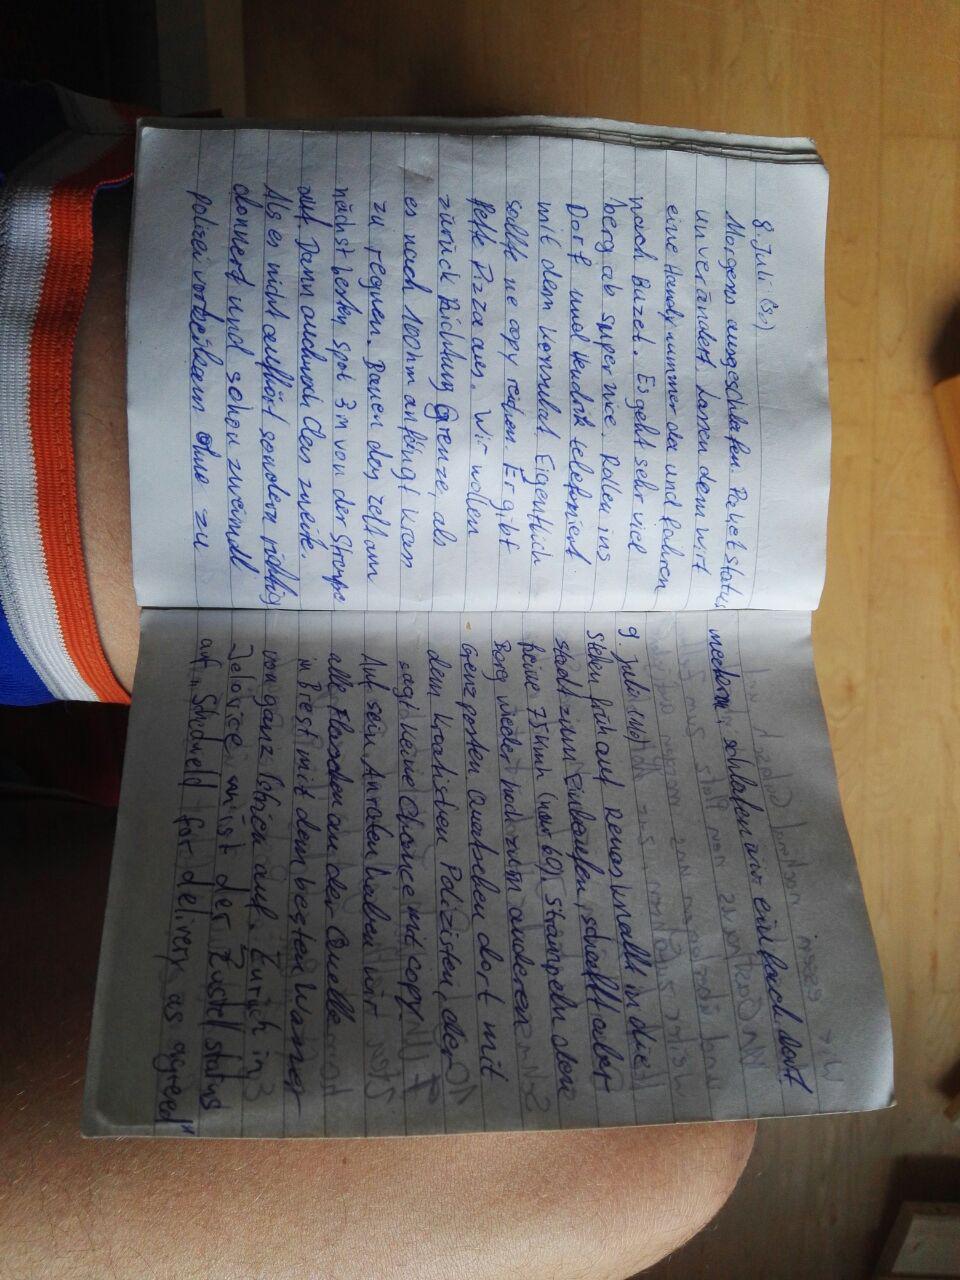 8. Juli (So)
Morgens ausgeschlafen. Paketstatus
unverändert, lassen dem Wirt
eine Handynummer da und fahren
nach Buzet. Es geht sehr viel
bergab super nice. Rollen ins
Dorf und Hendrik telefoniert
mit dem Konsulat. Eigentlich
sollte ne copy reichen. Er gibt
Pizza aus. Wir wollen
zurück Richtung Grenze, als
es nach 100hm anfängt krass
zu regnen. Bauen das Zelt am
nächstbesten spot 3m von der Straße
auf. Dann auch noch das zweite.
Als es nicht aufhört sondern richtig
donnert und schon zweimal
polizei vorbeikam ohne zu
meckern, schlafen wir einfach dort
9. Juli (Mo)
Stehen früh auf Renas unfällt in die
stadt zum einkaufen, schafft aber
keine 75kmh (nur 69). Strampeln dere
Berg wieder hoch zum anderen
Grenzposten quatschen dort mit
dem kroatischen Polizisten, der
sagt keine Chance mit copy.
Auf sein Anraten haben wir
alle Flaschen an der Quelle
in Brest mit dem besten Wasser
von ganz Istrien auf. Zurück in
Jelovice ist der Zustellstatus
auf "Sheduled for delivery as agreed"